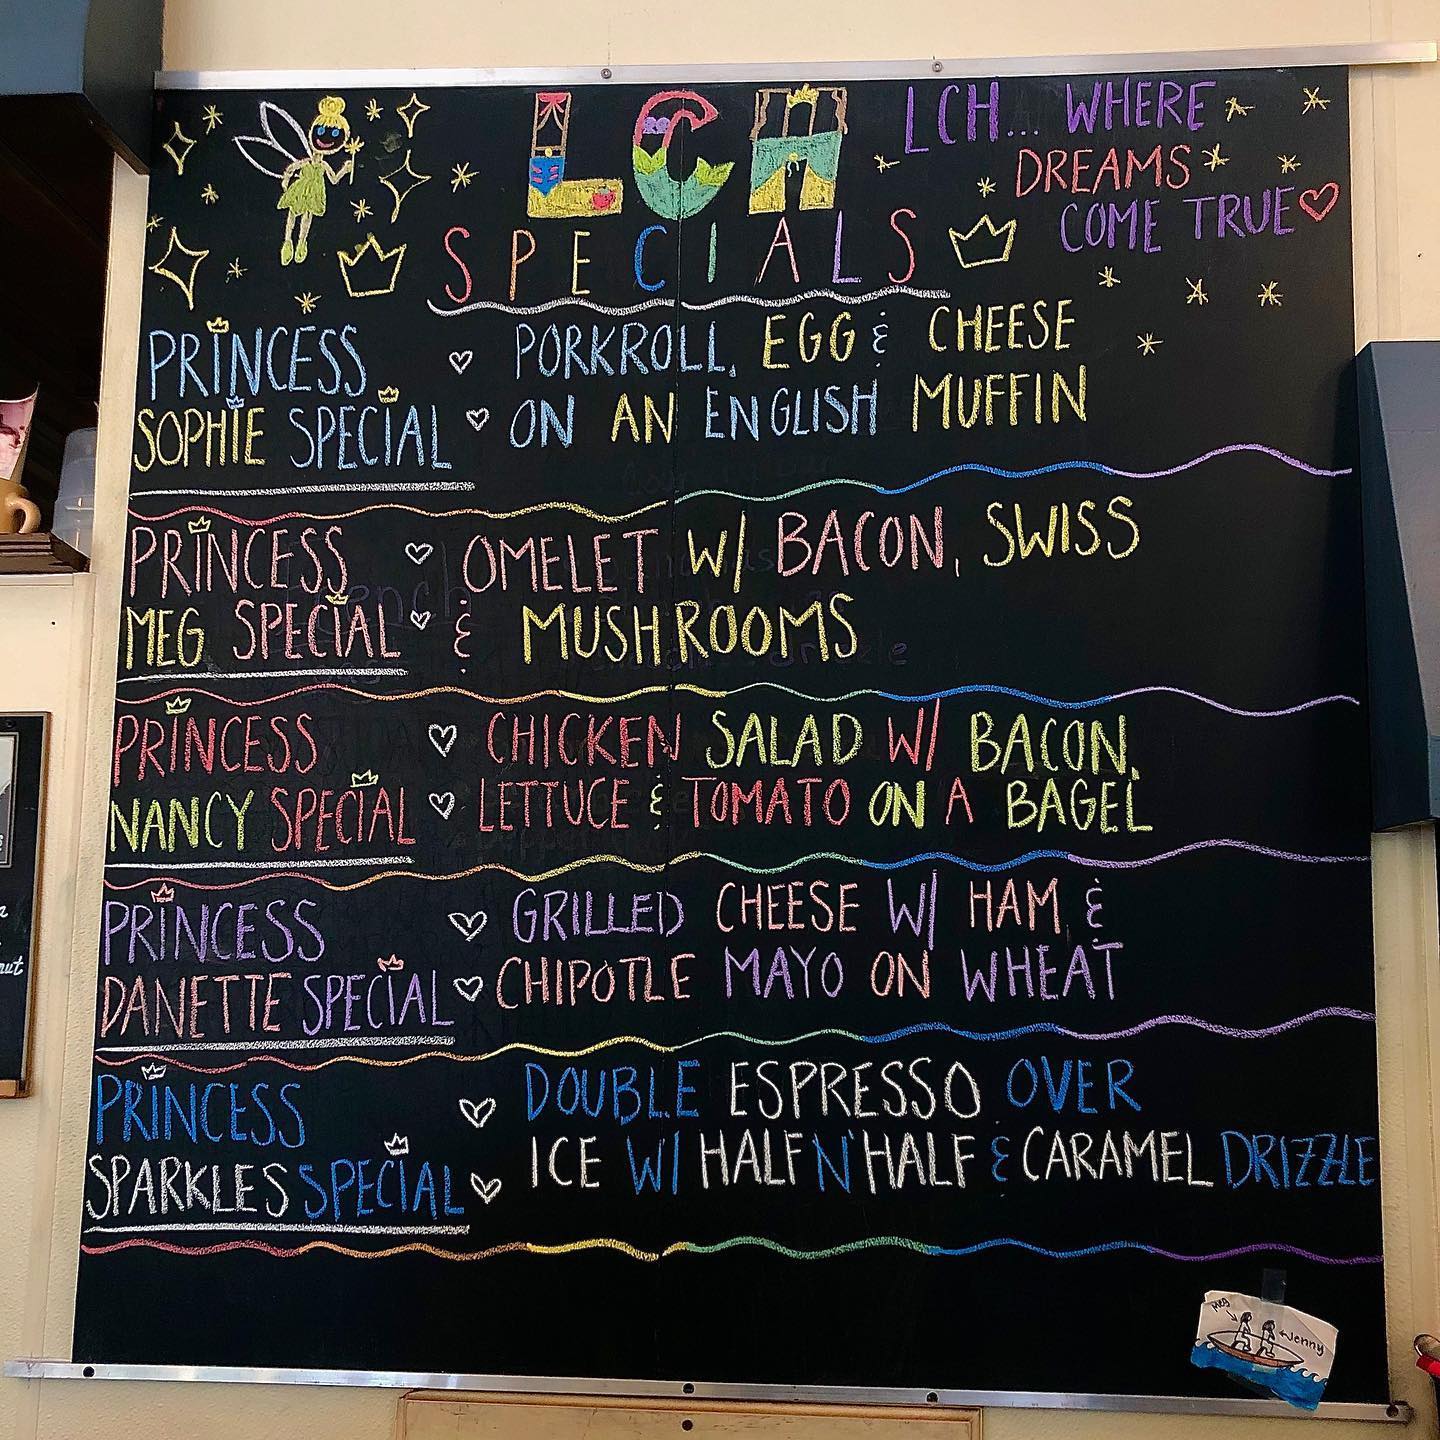 LCH... WHERE
DREAMS
COME TRUE
LCH
SPECIALS
PRINCESS
SOPHIE SPECIAL
PORKROLL, EGG & CHEESE
ON AN ENGLISH MUFFIN
PRINCESS
MEG SPECIAL
OMELET W/ BACON, SWISS
& MUSHROOMS
PRINCESS
NANCY SPECIAL
CHICKEN SALAD W/ BACON,
LETTUCE & TOMATO ON A BAGEL
PRINCESS
DANETTE SPECIAL
GRILLED CHEESE W/ HAM &
CHIPOTLE MAYO ON WHEAT
PRINCESS
SPARKLES SPECIAL
DOUBLE ESPRESSO OVER
ICE W/ HALF N' HALF & CARAMEL DRIZZLE
Meg
Jenny